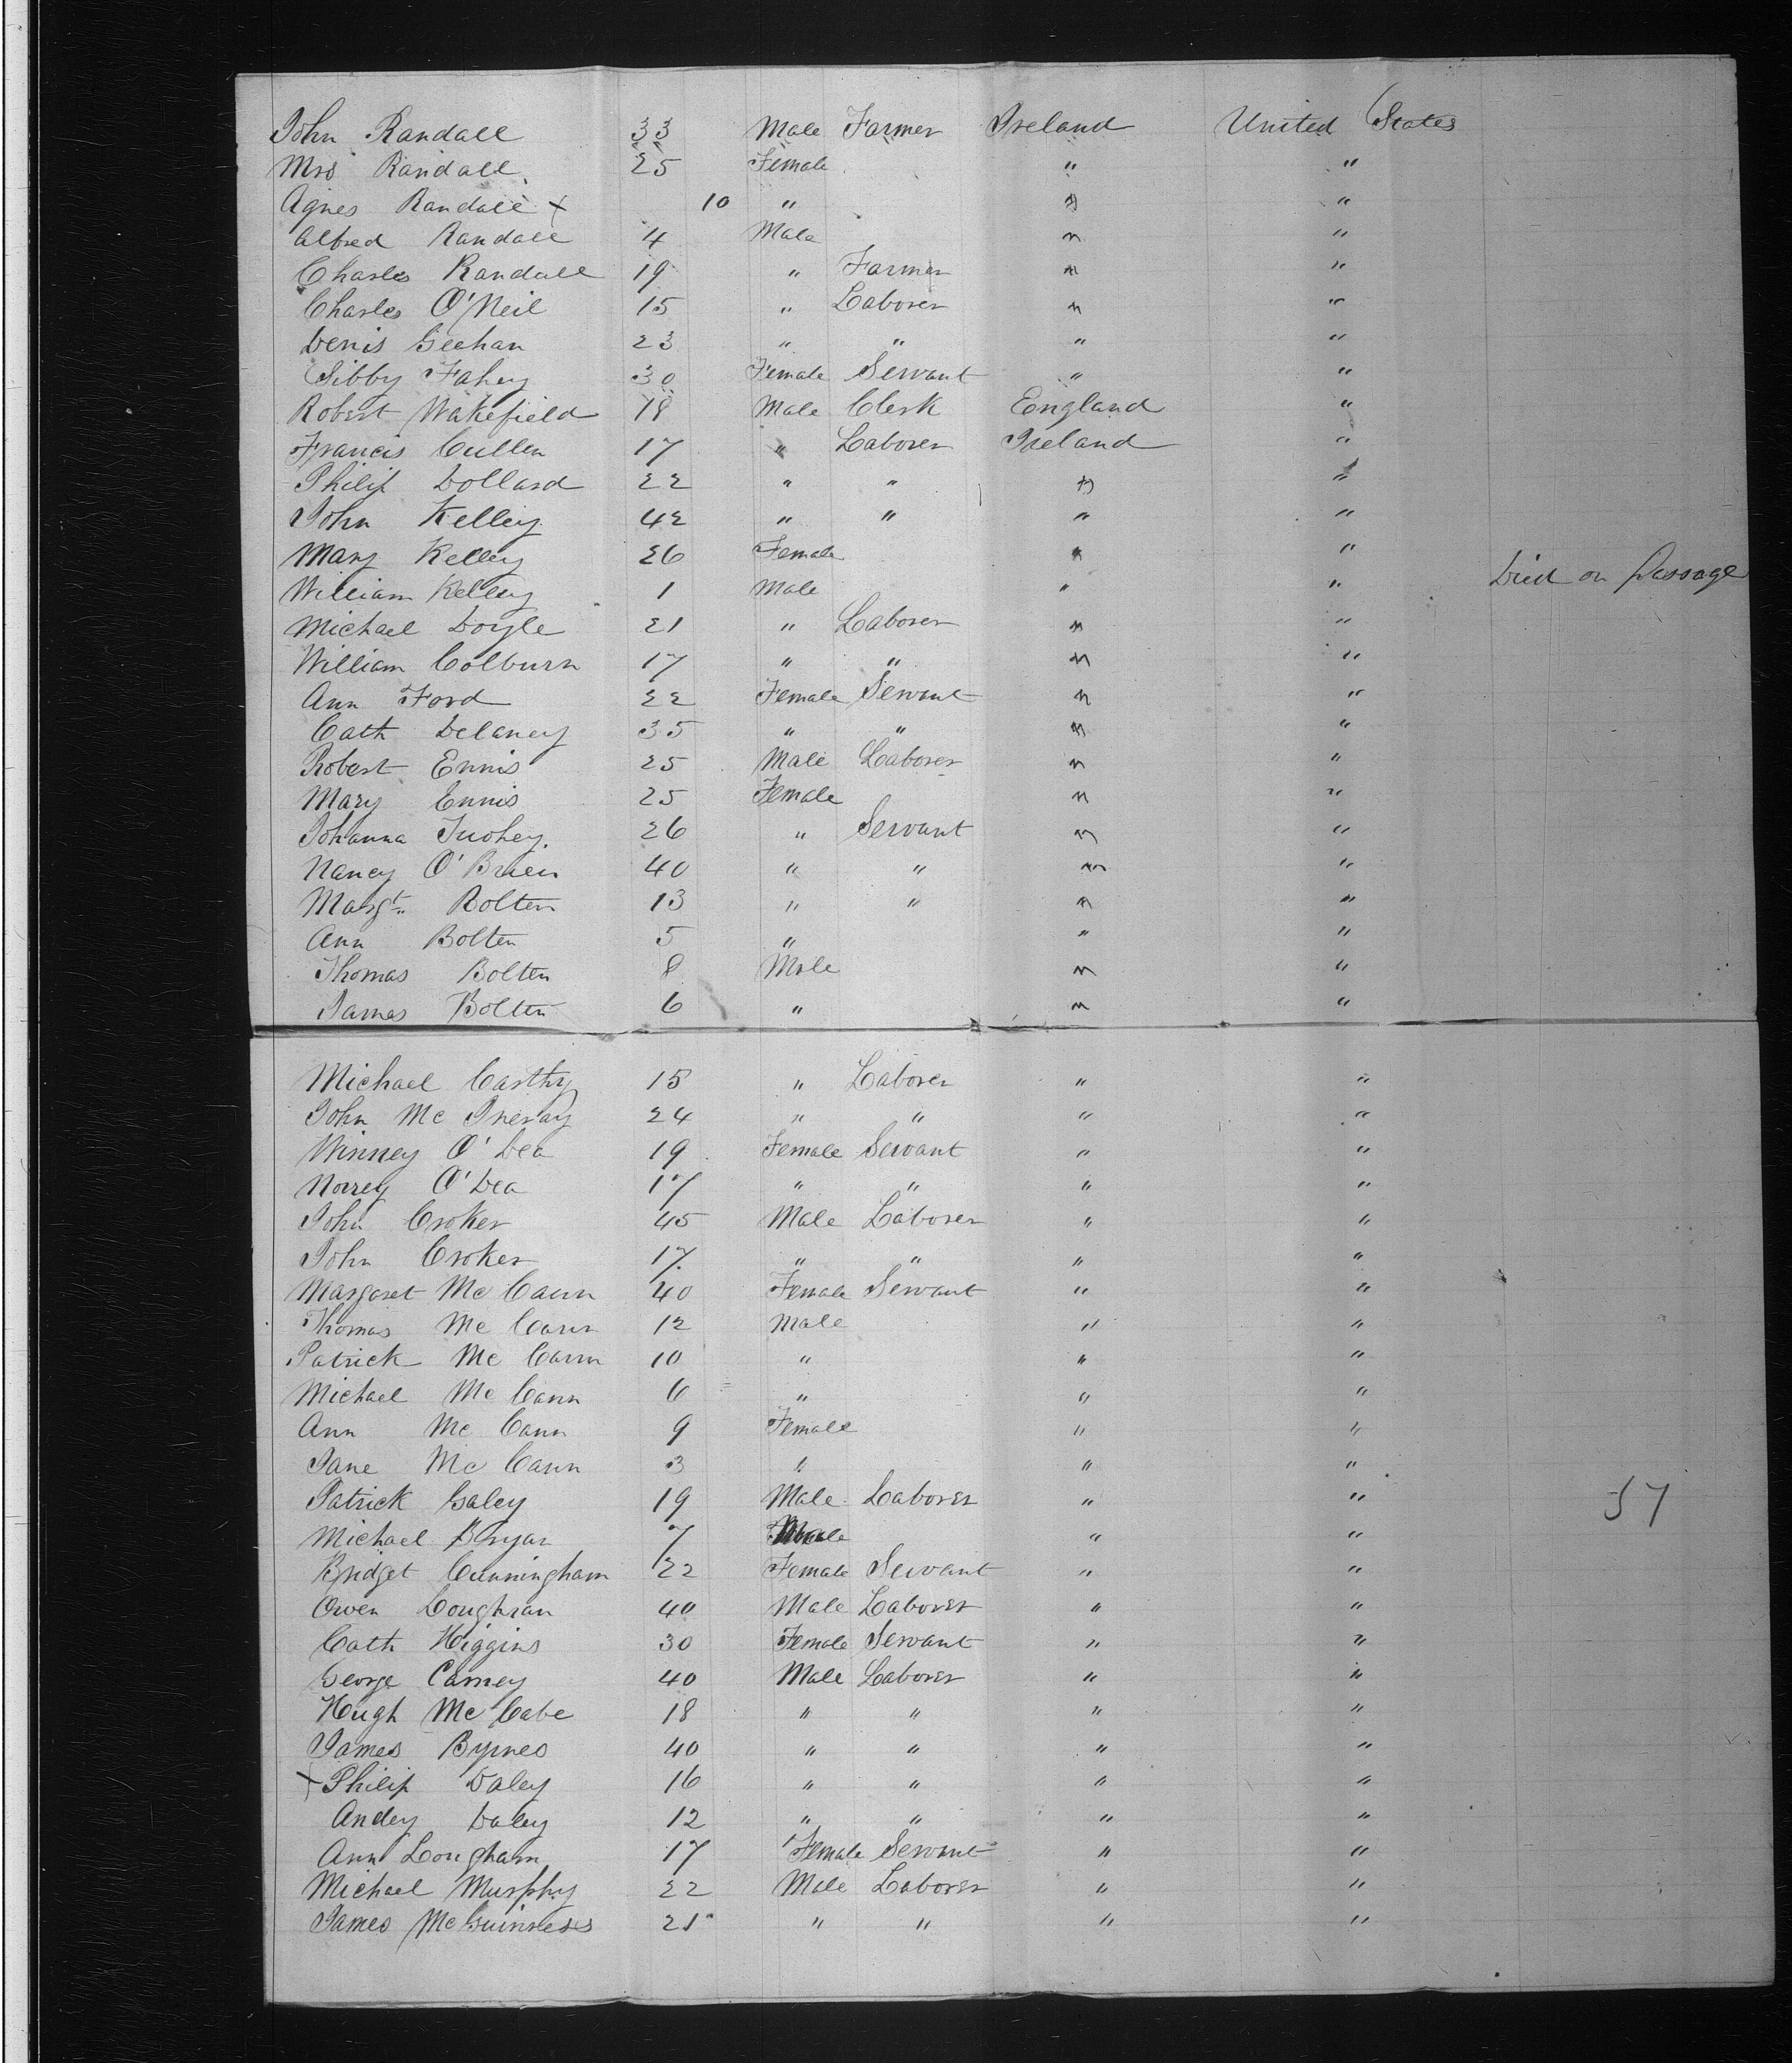 John Randall 33 Male Farmer Ireland United States
Mrs Randall 25 Female " "
Agnes Randall x 10 " " "
Alfred Randall 4 Male " "
Charles Randall 19 " Farmer " "
Charles O'Neil 15 " Laborer " "
Denis Geehan 23 " " " "
Sibby Fahey 30 Female Servant " "
Robert Wakefield 18 Male Clerk England "
Francis Cullen 17 " Laborer Ireland "
Philip Dollard 22 " " " "
John Kelley 42 " " " "
Mary Kelley 26 Female " "
William Kelley 1 Male " " Died on Passage
Michael Doyle 21 " Laborer " "
William Colburn 17 " " " "
Ann Ford 22 Female Servant " "
Cath Delaney 35 " " " "
Robert Ennis 25 Male Laborer " "
Mary Ennis 25 Female " "
Johanna Tuohey. 26 " Servant " "
Nancy O'Brien 40 " " " "
Margt. Bolten 13 " " " "
Ann Bolten 5 " " "
Thomas Bolten 8 Male " "
James Bolten 6 " " "
Michael Carthy 15 " Laborer " "
John Mc 24 " " " "
Winney O'Dea 19 Female Servant " "
Norrey O'Dea 17 " " " "
John Croker 45 Male Laborer " "
John Croker 17 " " " "
Margaret Mc Cann 40 Female Servant " "
Thomas Mc Cann 12 Male " "
Patrick Mc Cann 10 " " "
Michael Mc Cann 6 " " "
Ann Mc Cann 9 Female " "
Jane Mc Cann 3 " " "
Patrick Galey 19 Male Laborer " " 57
Michael Bryan 7 Male " "
Bridget Cunningham 22 Female Servant " "
Owen Loughran 40 Male Laborer " "
Cath Higgins 30 Female Servant " "
George Carney 40 Male Laborer " "
Hugh Mc Cabe 18 " " " "
James Byrnes 40 " " " "
x Philip Daley 16 " " " "
Andey Daley 12 " " " "
Ann Lougham 17 Female Servant " "
Michael Murphy 22 Male Laborer " "
James McGuinness 21 " " " "